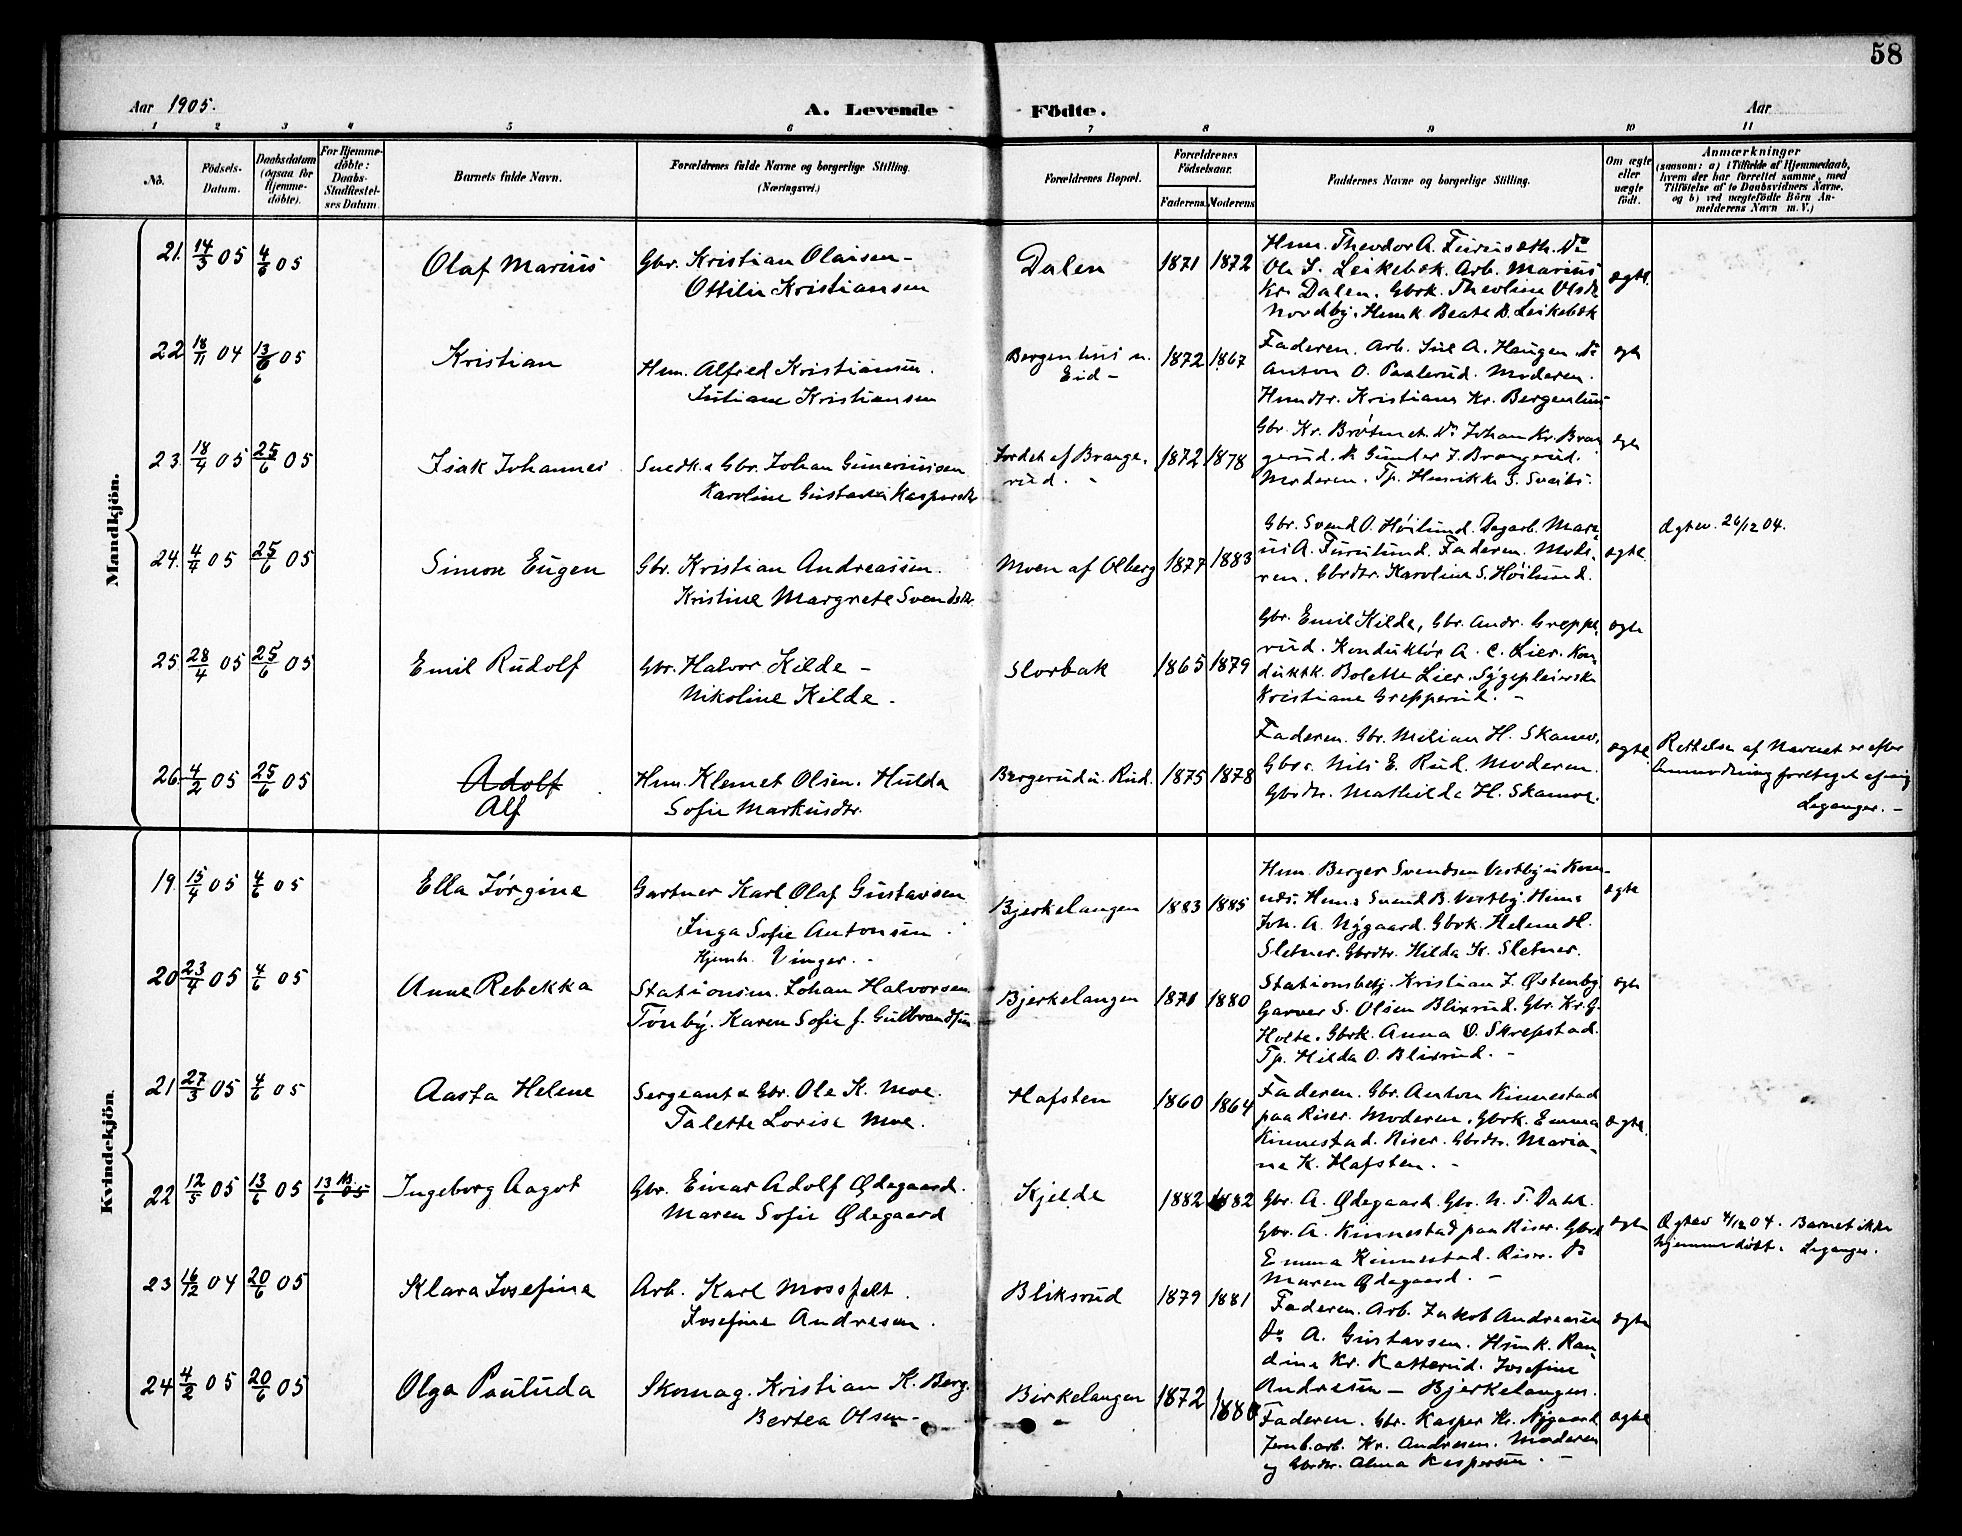 58
Aar 1905.
A. Levende Födte.
Aar
1 2 3 4 5 6 7 8 9 10 11
No.
Födsels-
Datum.
Daabsdatum
(ogsaa for
Hjemme-
döbte).
For Hjemme-
döbte:
Daabs-
Stadfæstel-
ses Datum.
Barnets fulde Navn.
Forældrenes fulde Navne og borgerlige Stilling.
(Næringsvei.)
Forældrenes Bopæl.
Forældrenes
Födselsaar.
Faderens. Moderens.
Faddernes Navne og borgerlige Stilling.
Om ægte
eller
uægte
födt.
Anmærkninger
(saasom: a) i Tilfælde af Hjemmedaab,
hvem der har forrettet samme, med
Tilföielse af to Daabsvidners Navne,
og b) ved uægtefödte Börn An-
melderens Navn m. V.)
Mandkjön.
21. 14/3 05 4/6 05
Olaf Marius
Gbr. Kristian Olaisen -
Ottilie Kristiansen
Dalen
1871 1872
Hmn. Theodor A. Furuseth. Do
Ole S. Leikebæk. Arb. Marius
Kr. Dalen. Gbrk. Theoline Olsdr
Nordby. Hmk. Beate B. Leikebæk
ægte.
22 18/11 04 13/6 05
Kristian
Hmn. Alfred Kristiansen.
Juliane Kristiansen
Bergenhus u.
Eid -
1872 1867
Faderen. Arb. Juel A. Haugen. Do
Anton O. Paalerud. Moderen.
Hmdtr. Kristiane Kr. Bergenhus
ægte
23. 18/4 05 25/6 05
Isak Johannes
Snedk. & Gbr. Johan Guneriussen
Karoline Gustava Kaspersdtr
Jordet af Brange-
rud.
1872 1878
Gbr. Kr. Bråtnet. Do Johan Kr. Bran-
gerud. Do Gunder J. Brangerud.
Moderen. Tp. Henrikke S.
ægte
24. 4/4 05 25/6 05
Simon Eugen
Gbr. Kristian Andreassen.
Kristine Margrete Svendsdtr
Moen af Olberg
1877 1883
Gbr. Svend O. Höilund. Dagarb. Mari-
us A. Furulund. Faderen. Mode-
ren. Gbrdtr. Karoline S. Höilund.
ægte.
Ægtev. 26/12 04.
25. 28/4 05 25/6 05
Emil Rudolf
Gbr. Halvor Kilde -
Nikoline Kilde -
Slorbak
1865 1879
Gbr. Emil Kilde, Gbr. Andr. Greppe-
rud. Konduktör A. C. Lier. Kon-
duktk. Bolette Lier. Sygepleierske
Kristiane Grepperud. -
ægte
26. 4/2 05 25/6 05
Adolf
Alf
Hmn. Klemet Olsen. Hulda
Sofie Markusdtr.
Bergerud u. Rud.
1875 1878
Faderen. Gbr. Milian H. Skamo.
Gbrs. Nils E. Rud. Moderen.
Gbrdtr. Mathilde H. Skamoe.
ægte.
Rettelsen af Navnet er efter
Anmodning foretaget af mig
Leganger. -
Kvindekjön.
19. 15/4 05 4/6 05
Ella Jörgine
Gartner Karl Olaf Gustavsen
Inga Sofie Antonsen.
Hjemh. Vinger. -
Bjerkelangen
1883 1885
Hmn. Berger Svendsen Vestby i Kom-
nds. Hmns Svend B. Vestby. Hmns
Joh. A. Nygaard. Gbrk. Helene H.
Sletner. Gbrdtr. Hilda K. Sletner.
ægte
20 23/4 05 4/6 05
Anne Rebekka
Stationsm. Johan Halvorsen
Tönby. Karen Sofie f. Gulbrandsen
Bjerkelangen
1871 1880
Stationsbetj. Kristian J. Østenby
Garver S. Olsen Blixrud. Gbr. Kr. G.
Holte. Gbrk. Anna O. Skrepstad.
Tp. Hilda O. Blixrud. -
ægte
21 27/3 05 4/6 05
Aasta Helene
Sergeant & Gbr. Ole K. Moe.
Talette Lovise Moe.
Hafsten
1860 1864
Faderen. Gbr. Anton Kinnestad
paa Riser. Moderen. Gbrk. Emma
Kinnestad. Riser. Gbrdtr. Maria-
ne K. Hafsten. -
ægte.
22 12/5 05 13/6 05 13/6 05
Ingeborg Aagot
Gbr. Einar Adolf Ødegaard.
Maren Sofie Ødegaard
Kjelde
1882 1882
Gbr. A. Ødegaard. Gbr. N. T. Dahl
Gbr. A. Kinnestad paa Riser. Gbrk
Emma Kinnestad. Riser. Do
Maren Ødegaard. -
ægte
Ægtev 4/12 04. Barnet ikke
hjemmedöbt. Leganger.
23 16/12 04 20/6 05
Klara Josefine
Arb. Karl Mossfelt.
Josefine Andresen.
Bliksrud
1879 1881
Faderen. Arb. Jakob Andreasen
Do A. Gustavsen. Hsmk. Ran-
dine Kr. Katterud. Josefine
Andresen - Bjerkelangen.
ægte
24 4/2 05 20/6 05
Olga Pauluda
Skomag. Kristian K. Berg.
Bertea Olsen -
Birkelangen
1872 1880
Faderen. Gbr. Kasper Kr. Nygaard
Jernb.arb. Kr. Andresen. Moderen
og Gbrdtr. Alma Kaspersen. -
ægte